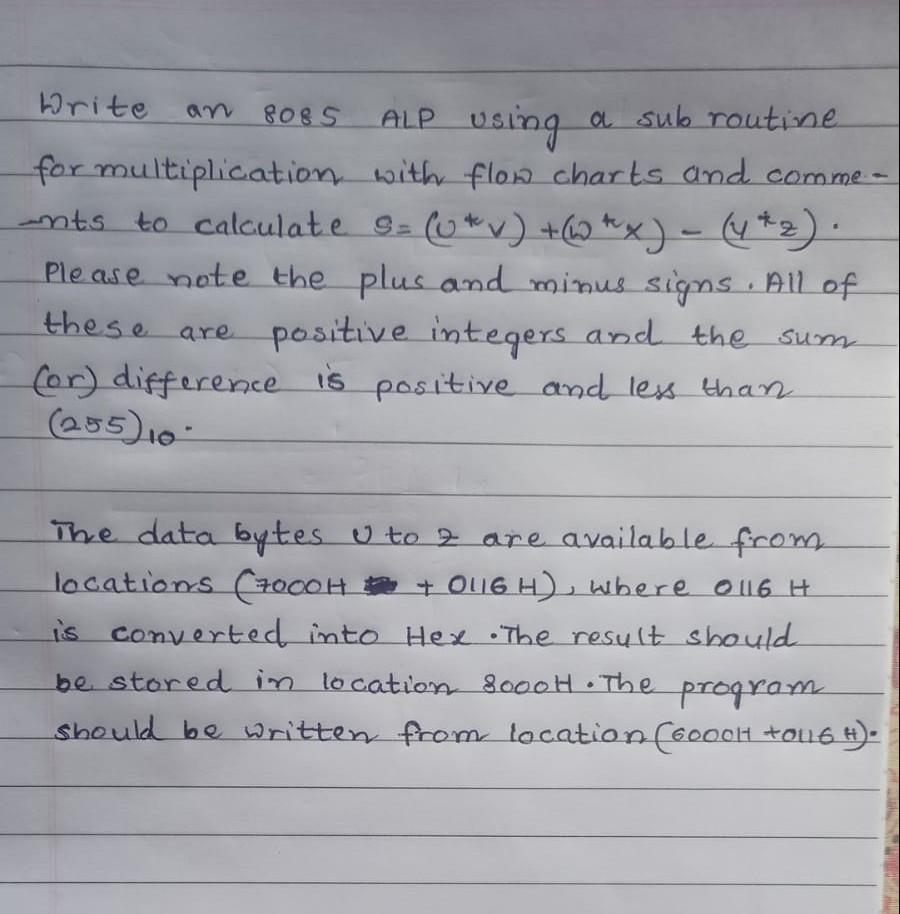 Write an 8085 ALP using a sub routine
for multiplication with flow charts and comme-
-nts to calculate S= (U*V) +(W*X) - (Y*Z).
Please note the plus and minus signs. All of
these are positive integers and the sum
(or) difference is positive and less than
(255)10.
The data bytes U to Z are available from
locations (7000H + 0116 H), where 0116 H
is converted into Hex. The result should
be stored in location 8000H. The program
should be written from location (6000H +0116 H).